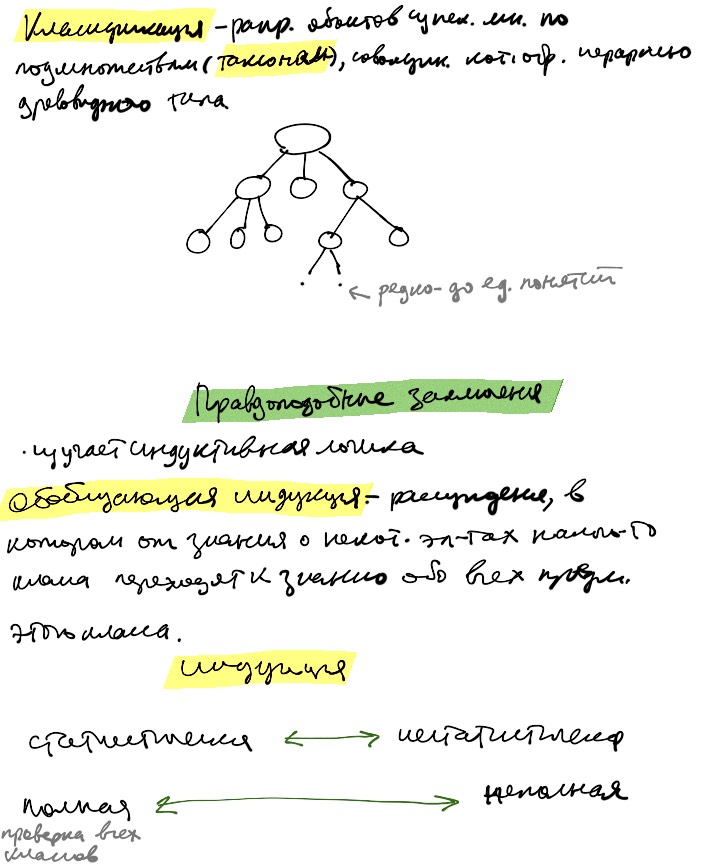 Классификация – распр. объектов сущес. мн. по
подмножествам (таксонам), совокупн. кот. обр. иерархию
древовидного типа
← редко - до ед. понятий
Правдоподобные заключения
· изучает индуктивная логика
Обобщающая индукция – рассуждение, в
котором от знания о некот. эл-тах какого-то
класса переходят к знанию обо всех предм.
этого класса.
индукция
статистическая ↔ нестатистическая
полная ↔ неполная
проверка всех
классов